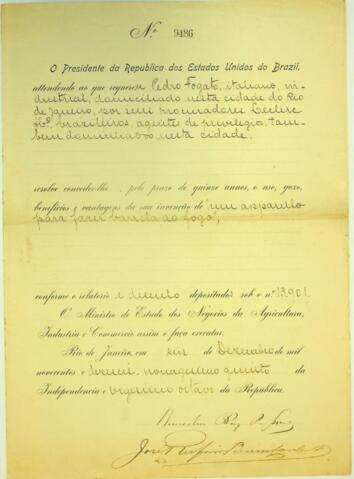 Nº 9486
O Presidente da Republica dos Estados Unidos do Brazil,
attendendo ao que requereu Pedro Fogato, italiano, in-
dustrial, domiciliado nesta cidade do Rio
de Janeiro, por seus procuradores Leclerc
& Cº, brazileiros, agentes de privilegios, tam-
bem domiciliados nesta cidade,
resolve conceder-lhe, pelo prazo de quinze annos, o uso, gozo,
beneficios e vantagens da sua invenção de "um apparelho
para fazer barrela ao fogo",
conforme o relatorio e desenho depositados sob o nº 13.901.
O Ministro de Estado dos Negocios da Agricultura,
Industria e Commercio assim o faça executar.
Rio de Janeiro, em seis de Dezembro de mil
novecentos e dezeseis, nonagesimo quinto da
Independencia e vigesimo oitavo da Republica.
José Rufino